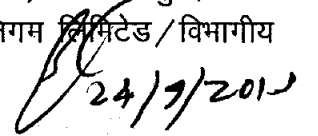 निगम लिमिटेड / विभागीय
24/9/201